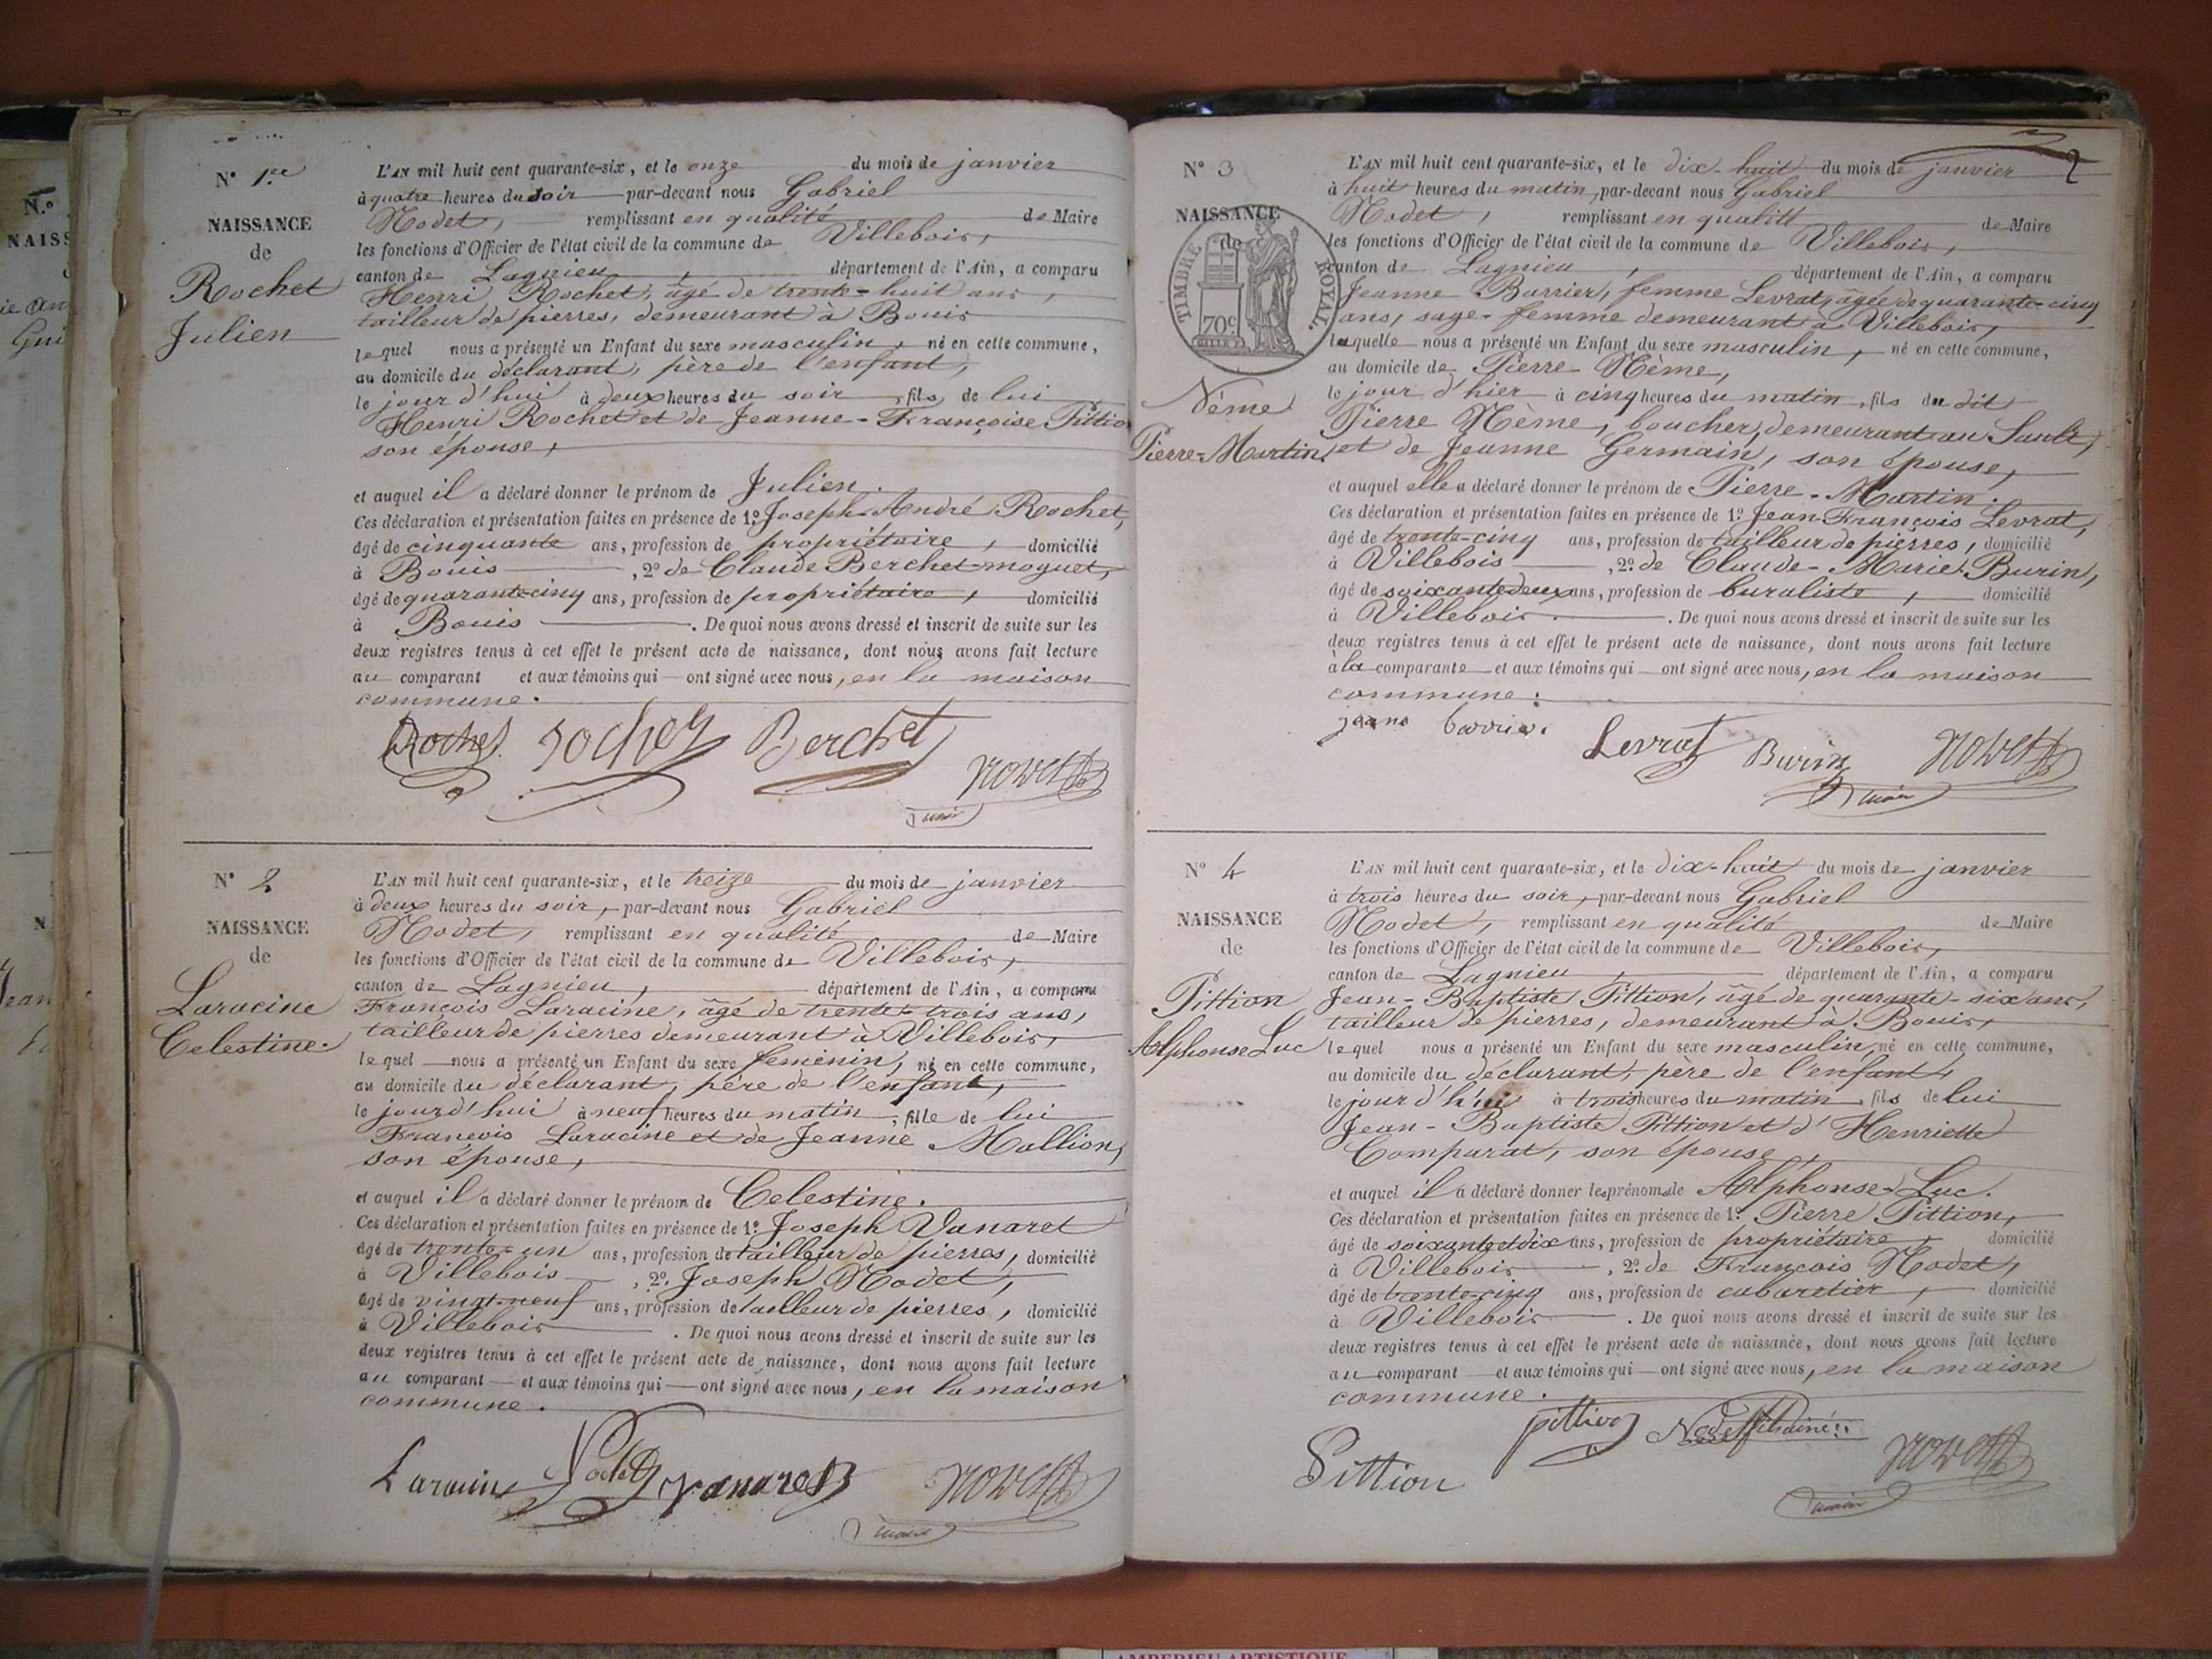 N° 1.re
NAISSANCE
de
Rochet
Julien
L'AN mil huit cent quarante-six, et le onze du mois de janvier
à quatre heures du soir par-devant nous Gabriel
Nodet, remplissant en qualité de Maire
les fonctions d'Officier de l'état civil de la commune de Villebois,
canton de Lagnieu, département de l'Ain, a comparu
Henri Rochet, âgé de trente-huit ans,
tailleur de pierres, demeurant à Bouis
lequel nous a présenté un Enfant du sexe masculin, né en cette commune,
au domicile du déclarant, père de l'enfant,
le jour d'hui à deux heures du soir, fils de lui
Henri Rochet et de Jeanne-Françoise Pittio
son épouse,
et auquel il a déclaré donner le prénom de Julien.
Ces déclaration et présentation faites en présence de 1.° Joseph-André Rochet,
âgé de cinquante ans, profession de propriétaire, domicilié
à Bouis, 2.° de Claude Berchet-moguet,
âgé de quarante-cinq ans, profession de propriétaire, domicilié
à Bouis. De quoi nous avons dressé et inscrit de suite sur les
deux registres tenus à cet effet le présent acte de naissance, dont nous avons fait lecture
au comparant et aux témoins qui ont signé avec nous, en la maison
commune.
Rochet Rochet Berchet Nodet
maire
N° 2
NAISSANCE
de
Laracine
Celestine.
L'AN mil huit cent quarante-six, et le treize du mois de janvier
à deux heures du soir, par-devant nous Gabriel
Nodet, remplissant en qualité de Maire
les fonctions d'Officier de l'état civil de la commune de Villebois,
canton de Lagnieu, département de l'Ain, a comparu
François Laracine, âgé de trente-trois ans,
tailleur de pierres demeurant à Villebois,
lequel nous a présenté un Enfant du sexe feminin, né en cette commune,
au domicile du déclarant, père de l'enfant,
le jourd'hui à neuf heures du matin, fille de lui
François Laracine et de Jeanne Mollion,
son épouse,
et auquel il a déclaré donner le prénom de Celestine.
Ces déclaration et présentation faites en présence de 1.° Joseph Vanaret
âgé de trente-un ans, profession de tailleur de pierres, domicilié
à Villebois, 2.° Joseph Nodet,
âgé de vingt-neuf ans, profession de tailleur de pierres, domicilié
à Villebois. De quoi nous avons dressé et inscrit de suite sur les
deux registres tenus à cet effet le présent acte de naissance, dont nous avons fait lecture
au comparant et aux témoins qui ont signé avec nous, en la maison
commune.
Laracine Nodet Vanaret Nodet
maire
2
N° 3
NAISSANCE
de
TIMBRE ROYAL.
70c
Nème
Pierre-Martin.
L'AN mil huit cent quarante-six, et le dix-huit du mois de janvier
à huit heures du matin, par-devant nous Gabriel
Nodet, remplissant en qualité de Maire
les fonctions d'Officier de l'état civil de la commune de Villebois,
canton de Lagnieu, département de l'Ain, a comparu
Jeanne Barrier, femme Levrat, âgée de quarante-cinq
ans, sage-femme demeurant à Villebois,
laquelle nous a présenté un Enfant du sexe masculin, né en cette commune,
au domicile de Pierre Nème,
le jour d'hier à cinq heures du matin, fils du dit
Pierre Nème, boucher, demeurant au Sault,
et de Jeanne Germain, son épouse,
et auquel elle a déclaré donner le prénom de Pierre-Martin.
Ces déclaration et présentation faites en présence de 1.° Jean-François Levrat,
âgé de trente-cinq ans, profession de tailleur de pierres, domicilié
à Villebois, 2.° de Claude-Marie Burin,
âgé de soixante deux ans, profession de buraliste, domicilié
à Villebois. De quoi nous avons dressé et inscrit de suite sur les
deux registres tenus à cet effet le présent acte de naissance, dont nous avons fait lecture
à la comparante et aux témoins qui ont signé avec nous, en la maison
commune.
jeane barrier. Levrat Burin Nodet
maire
N° 4
NAISSANCE
de
Pittion
Alphonse Luc
L'AN mil huit cent quarante-six, et le dix-huit du mois de janvier
à trois heures du soir, par-devant nous Gabriel
Nodet, remplissant en qualité de Maire
les fonctions d'Officier de l'état civil de la commune de Villebois,
canton de Lagnieu, département de l'Ain, a comparu
Jean-Baptiste Pittion, âgé de quarante-six ans,
tailleur de pierres, demeurant à Bouis,
lequel nous a présenté un Enfant du sexe masculin, né en cette commune,
au domicile du déclarant, père de l'enfant,
le jour d'hui à trois heures du matin, fils de lui
Jean-Baptiste Pittion et d'Henriette
Comparat, son épouse,
et auquel il a déclaré donner les prénoms de Alphonse-Luc.
Ces déclaration et présentation faites en présence de 1.° Pierre Pittion,
âgé de soixante et dix ans, profession de propriétaire, domicilié
à Villebois, 2.° de François Nodet,
âgé de trente-cinq ans, profession de cabaretier, domicilié
à Villebois. De quoi nous avons dressé et inscrit de suite sur les
deux registres tenus à cet effet le présent acte de naissance, dont nous avons fait lecture
au comparant et aux témoins qui ont signé avec nous, en la maison
commune.
Pittion pittion Nodet fils ainé Nodet
maire
AMBERIEU ARTISTIQUE